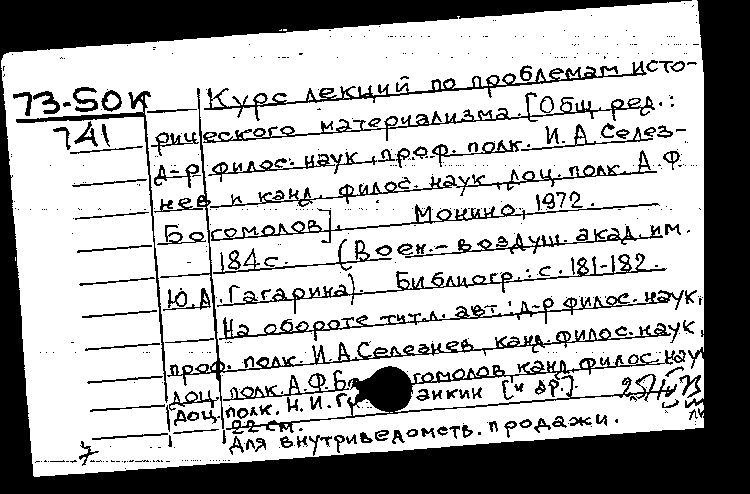 73-50К Курс лекций по проблемам исто-
741
рического материализма. [Общ. ред.:
д-р филос. наук, проф. полк. И. А. Селез-
нев и канд. филос. наук, доц. полк. А. Ф.
Богомолов]. Монино, 1972.
184 с. (Воен.-воздуш. акад. им.
Ю. А. Гагарина). Библиогр.: с. 181-182.
На обороте тит. л. авт.: д-р филос. наук,
проф. полк. И. А. Селезнев, канд. филос. наук,
доц. полк. А. Ф. Богомолов, канд. филос. наук
доц. полк. Н. И. [и др.].
22 см.
Для внутриведомств. продажи.